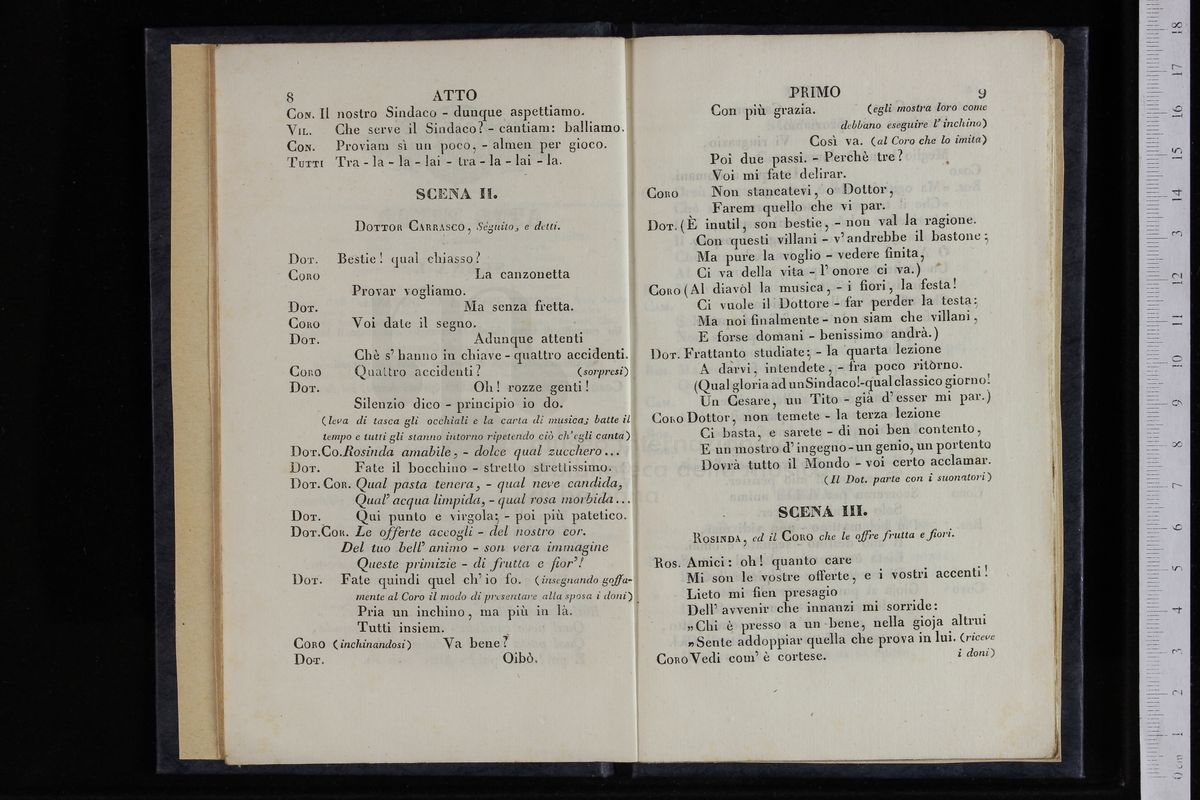 8 ATTO
CON. Il nostro Sindaco - dunque aspettiamo.
VIL. Che serve il Sindaco? - cantiam: balliamo.
CON. Proviam sì un poco, - almen per gioco.
TUTTI Tra - la - la - lai - tra - la - lai - la.
SCENA II.
DOTTOR CARRASCO, Séguito, e detti.
DOT. Bestie! qual chiasso?
CORO La canzonetta
Provar vogliamo.
DOT. Ma senza fretta.
CORO Voi date il segno.
DOT. Adunque attenti
Chè s' hanno in chiave - quattro accidenti.
CORO Quattro accidenti? (sorpresi)
DOT. Oh! rozze genti!
Silenzio dico - principio io do.
(leva di tasca gli occhiali e la carta di musica; batte il
tempo e tutti gli stanno intorno ripetendo ciò ch'egli canta)
DOT.CO. Rosinda amabile, - dolce qual zucchero...
DOT. Fate il bocchino - stretto strettissimo.
DOT. COR. Qual pasta tenera, - qual neve candida,
Qual' acqua limpida, - qual rosa morbida...
DOT. Qui punto e virgola; - poi più patetico.
DOT.COR. Le offerte accogli - del nostro cor.
Del tuo bell' animo - son vera immagine
Queste primizie - di frutta e fior'!
DOT. Fate quindi quel ch' io fo. (insegnando goffa-
mente al Coro il modo di presentare alla sposa i doni)
Pria un inchino, ma più in là.
Tutti insiem.
CORO (inchinandosi) Va bene?
DOT. Oibò.
PRIMO 9
Con più grazia. (egli mostra loro come
debbano eseguire l' inchino)
Così va. (al Coro che lo imita)
Poi due passi. - Perchè tre?
Voi mi fate delirar.
CORO Non stancatevi, o Dottor,
Farem quello che vi par.
DOT. (È inutil, son bestie, - non val la ragione.
Con questi villani - v' andrebbe il bastone;
Ma pure la voglio - vedere finita,
Ci va della vita - l' onore ci va.)
CORO (Al diavòl la musica, - i fiori, la festa!
Ci vuole il Dottore - far perder la testa;
Ma noi finalmente - non siam che villani,
E forse domani - benissimo andrà.)
DOT. Frattanto studiate; - la quarta lezione
A darvi, intendete, - fra poco ritòrno.
(Qual gloria ad un Sindaco!-qual classico giorno!
Un Cesare, un Tito - già d' esser mi par.)
CORO Dottor, non temete - la terza lezione
Ci basta, e sarete - di noi ben contento,
E un mostro d' ingegno - un genio, un portento
Dovrà tutto il Mondo - voi certo acclamar.
(Il Dot. parte con i suonatori)
SCENA III.
ROSINDA, ed il CORO che le offre frutta e fiori.
ROS. Amici: oh! quanto care
Mi son le vostre offerte, e i vostri accenti!
Lieto mi fien presagio
Dell' avvenir che innanzi mi sorride:
„Chi è presso a un bene, nella gioja altrui
„Sente addoppiar quella che prova in lui. (riceve
i doni)
CORO Vedi com' è cortese.